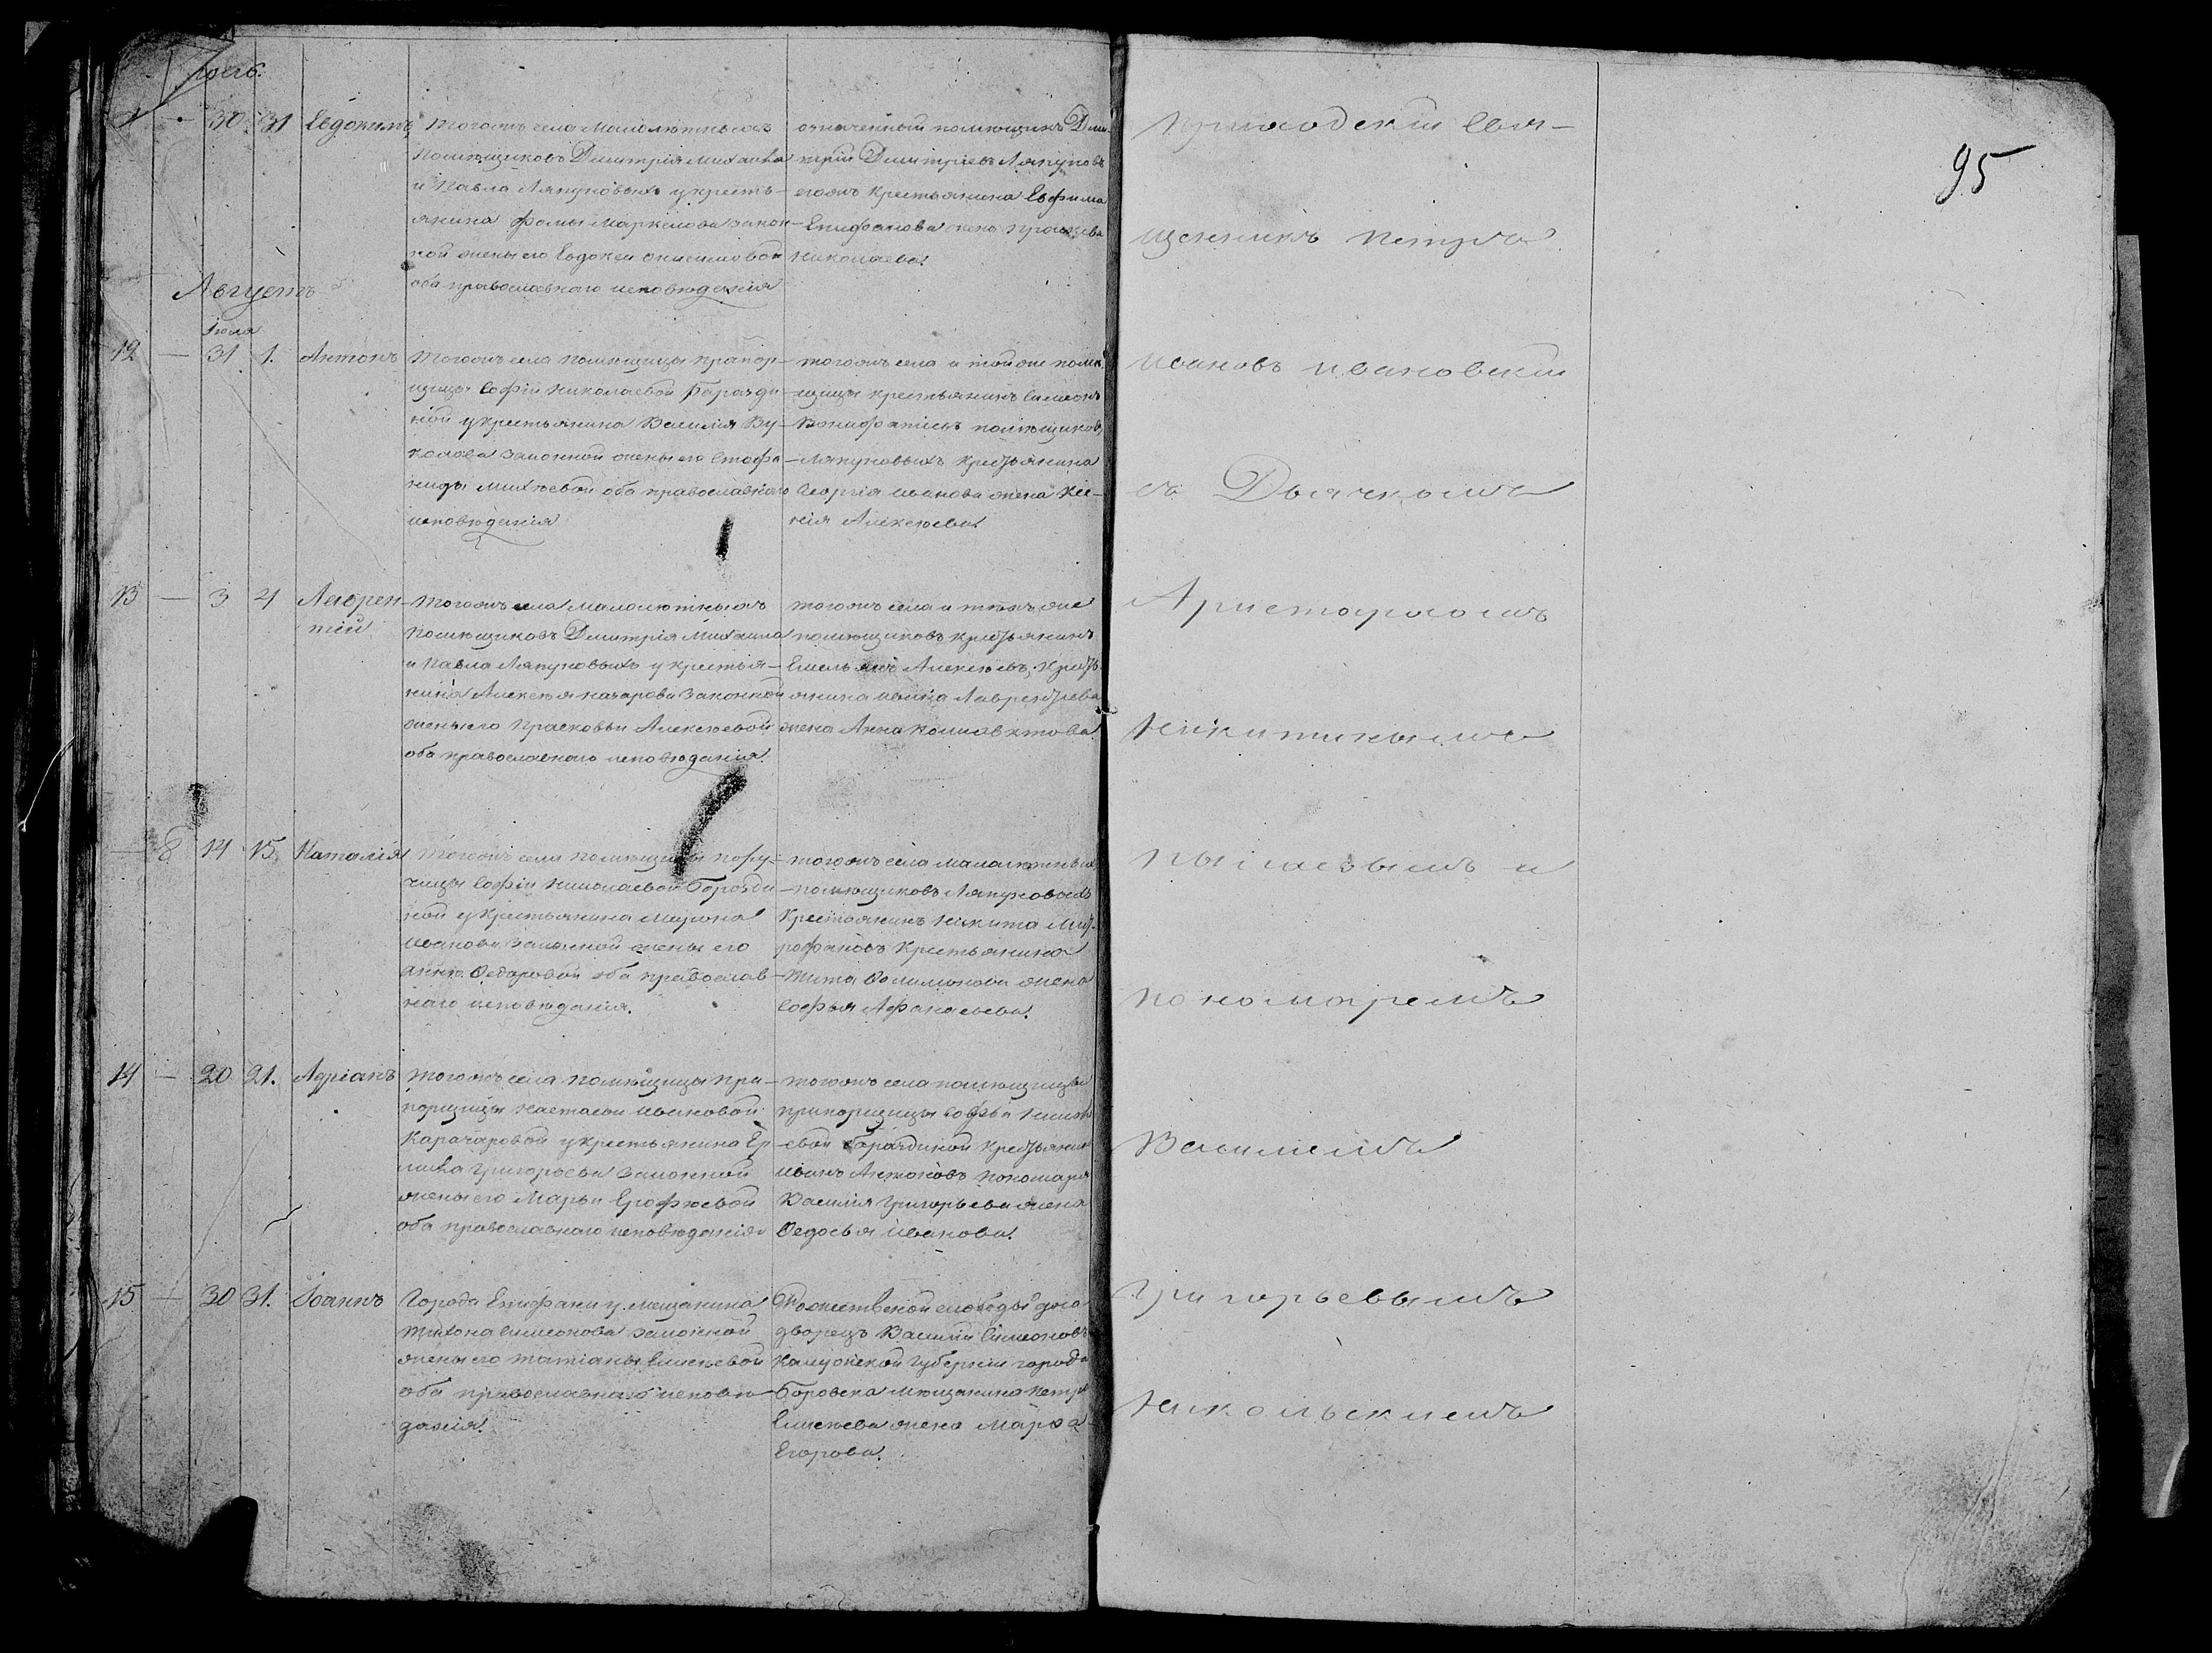 95
30 31 Евдокимъ
Тогожъ села Малолютныхъ
помѣщиковъ Димитрія Михаила
и Павла Ляпуновыхъ у кресть-
янина Фомы Маркелова закон-
ной жены его Евдокеи Онисимовой
оба православнаго исповѣданія
означенный помѣщикъ Дми-
трій Димитріевъ Ляпуновъ
егожъ крестьянина Евфима
Епифанова жена Прасковья
Николаева.
Августъ
Іюля
12 — 31 1. Антонъ
Тогожъ села помѣщицы прапор-
щицы Софіи Николаевой
ной у крестьянина Василія Ву-
колова законной жены его Стефа-
ниды Михѣевой оба православнаго
исповѣданія
тогожъ села и тойже помѣ-
щицы крестьянинъ Симеонъ
Вонифатіевъ помѣщиковъ
Ляпуновыхъ крестьянина
Георгія Иванова жена Ксе-
нія Алексѣева.
13 — 3 4 Лаврен-
тій
Тогожъ села Малолютныхъ
помѣщиковъ Димитрія Михаила
и Павла Ляпуновыхъ у крестья-
нина Алексѣя Назарова законной
жены его Прасковьи Алексѣевой
оба православнаго исповѣданія.
тогожъ села и тѣхъ же
помѣщиковъ крестьянинъ
Емельянъ Алексѣевъ, кресть-
янина Ивана Лаврентьева
жена Анна
— 8 14 15. Наталія
Тогожъ села помѣщицы пору-
чицы Софіи Николаевой Борозди-
ной у крестьянина Мирона
Иванова законной жены его
Анны Ѳедоровой оба православ-
наго исповѣданія.
тогожъ села Малолютныхъ
помѣщиковъ Ляпуновыхъ
крестьянинъ Никита Мит-
рофановъ крестьянина
Тита Филимонова жена
Софья Афанасьева.
14 — 20 21. Адріанъ
Тогожъ села помѣщицы пра-
порщицы Настасьи Ивановой
Карачаровой у крестьянина Ер-
Григорьева законной
жены его Марьи Ерофѣевой
оба православнаго исповѣданія
тогожъ села помѣщицы
прапорщицы Софьи
крестьянинъ
Иванъ Антоновъ пономаря
Василія Григорьева жена
Ѳедосья Иванова.
15 — 30 31. Іоаннъ
Города Епифани у мещанина
Тихона Симеонова законной
жены его Татіаны Елисѣевой
оба православнаго исповѣ-
данія.
слободы одно-
дворецъ Василій Симеоновъ
Калужской губерніи города
Боровска мѣщанина Петра
Елисѣева жена Марѳа
Егорова.
Приходскій Свя-
щенникъ Петръ
Ивановъ Ивановскій
съ Дьячкомъ
Аристархомъ
Никитинымъ
и
пономаремъ
Василіемъ
Григорьевымъ
Никольскимъ